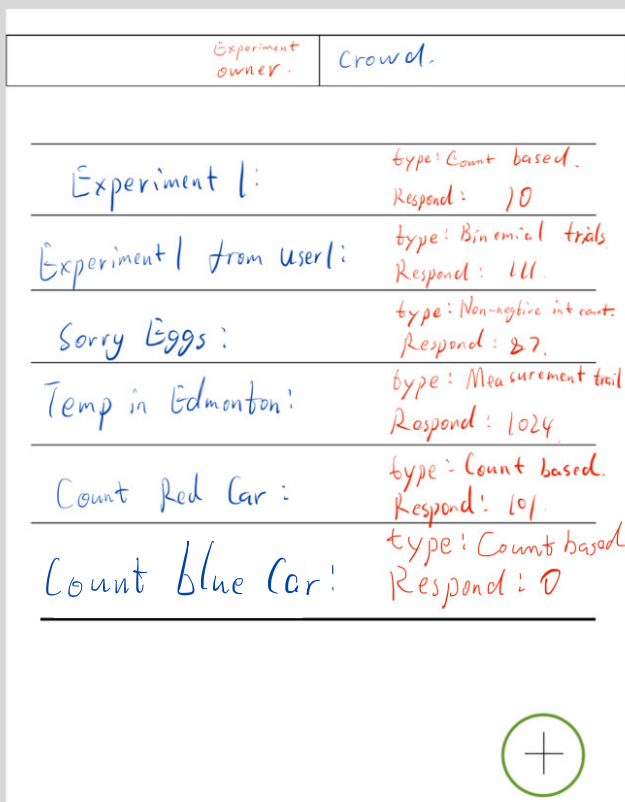 Experiment
owner.
Crowd.
Experiment 1:
type: Count based.
Respond: 10
Experiment 1 from user1:
type: Binomial trials
Respond: 111
Sorry Eggs:
type: Non-negtive int count.
Respond: 87.
Temp in Edmonton:
type: Measurement trail
Respond: 1024
Count Red Car:
type: Count based.
Respond: 101.
Count blue Car:
type: Count based
Respond: 0